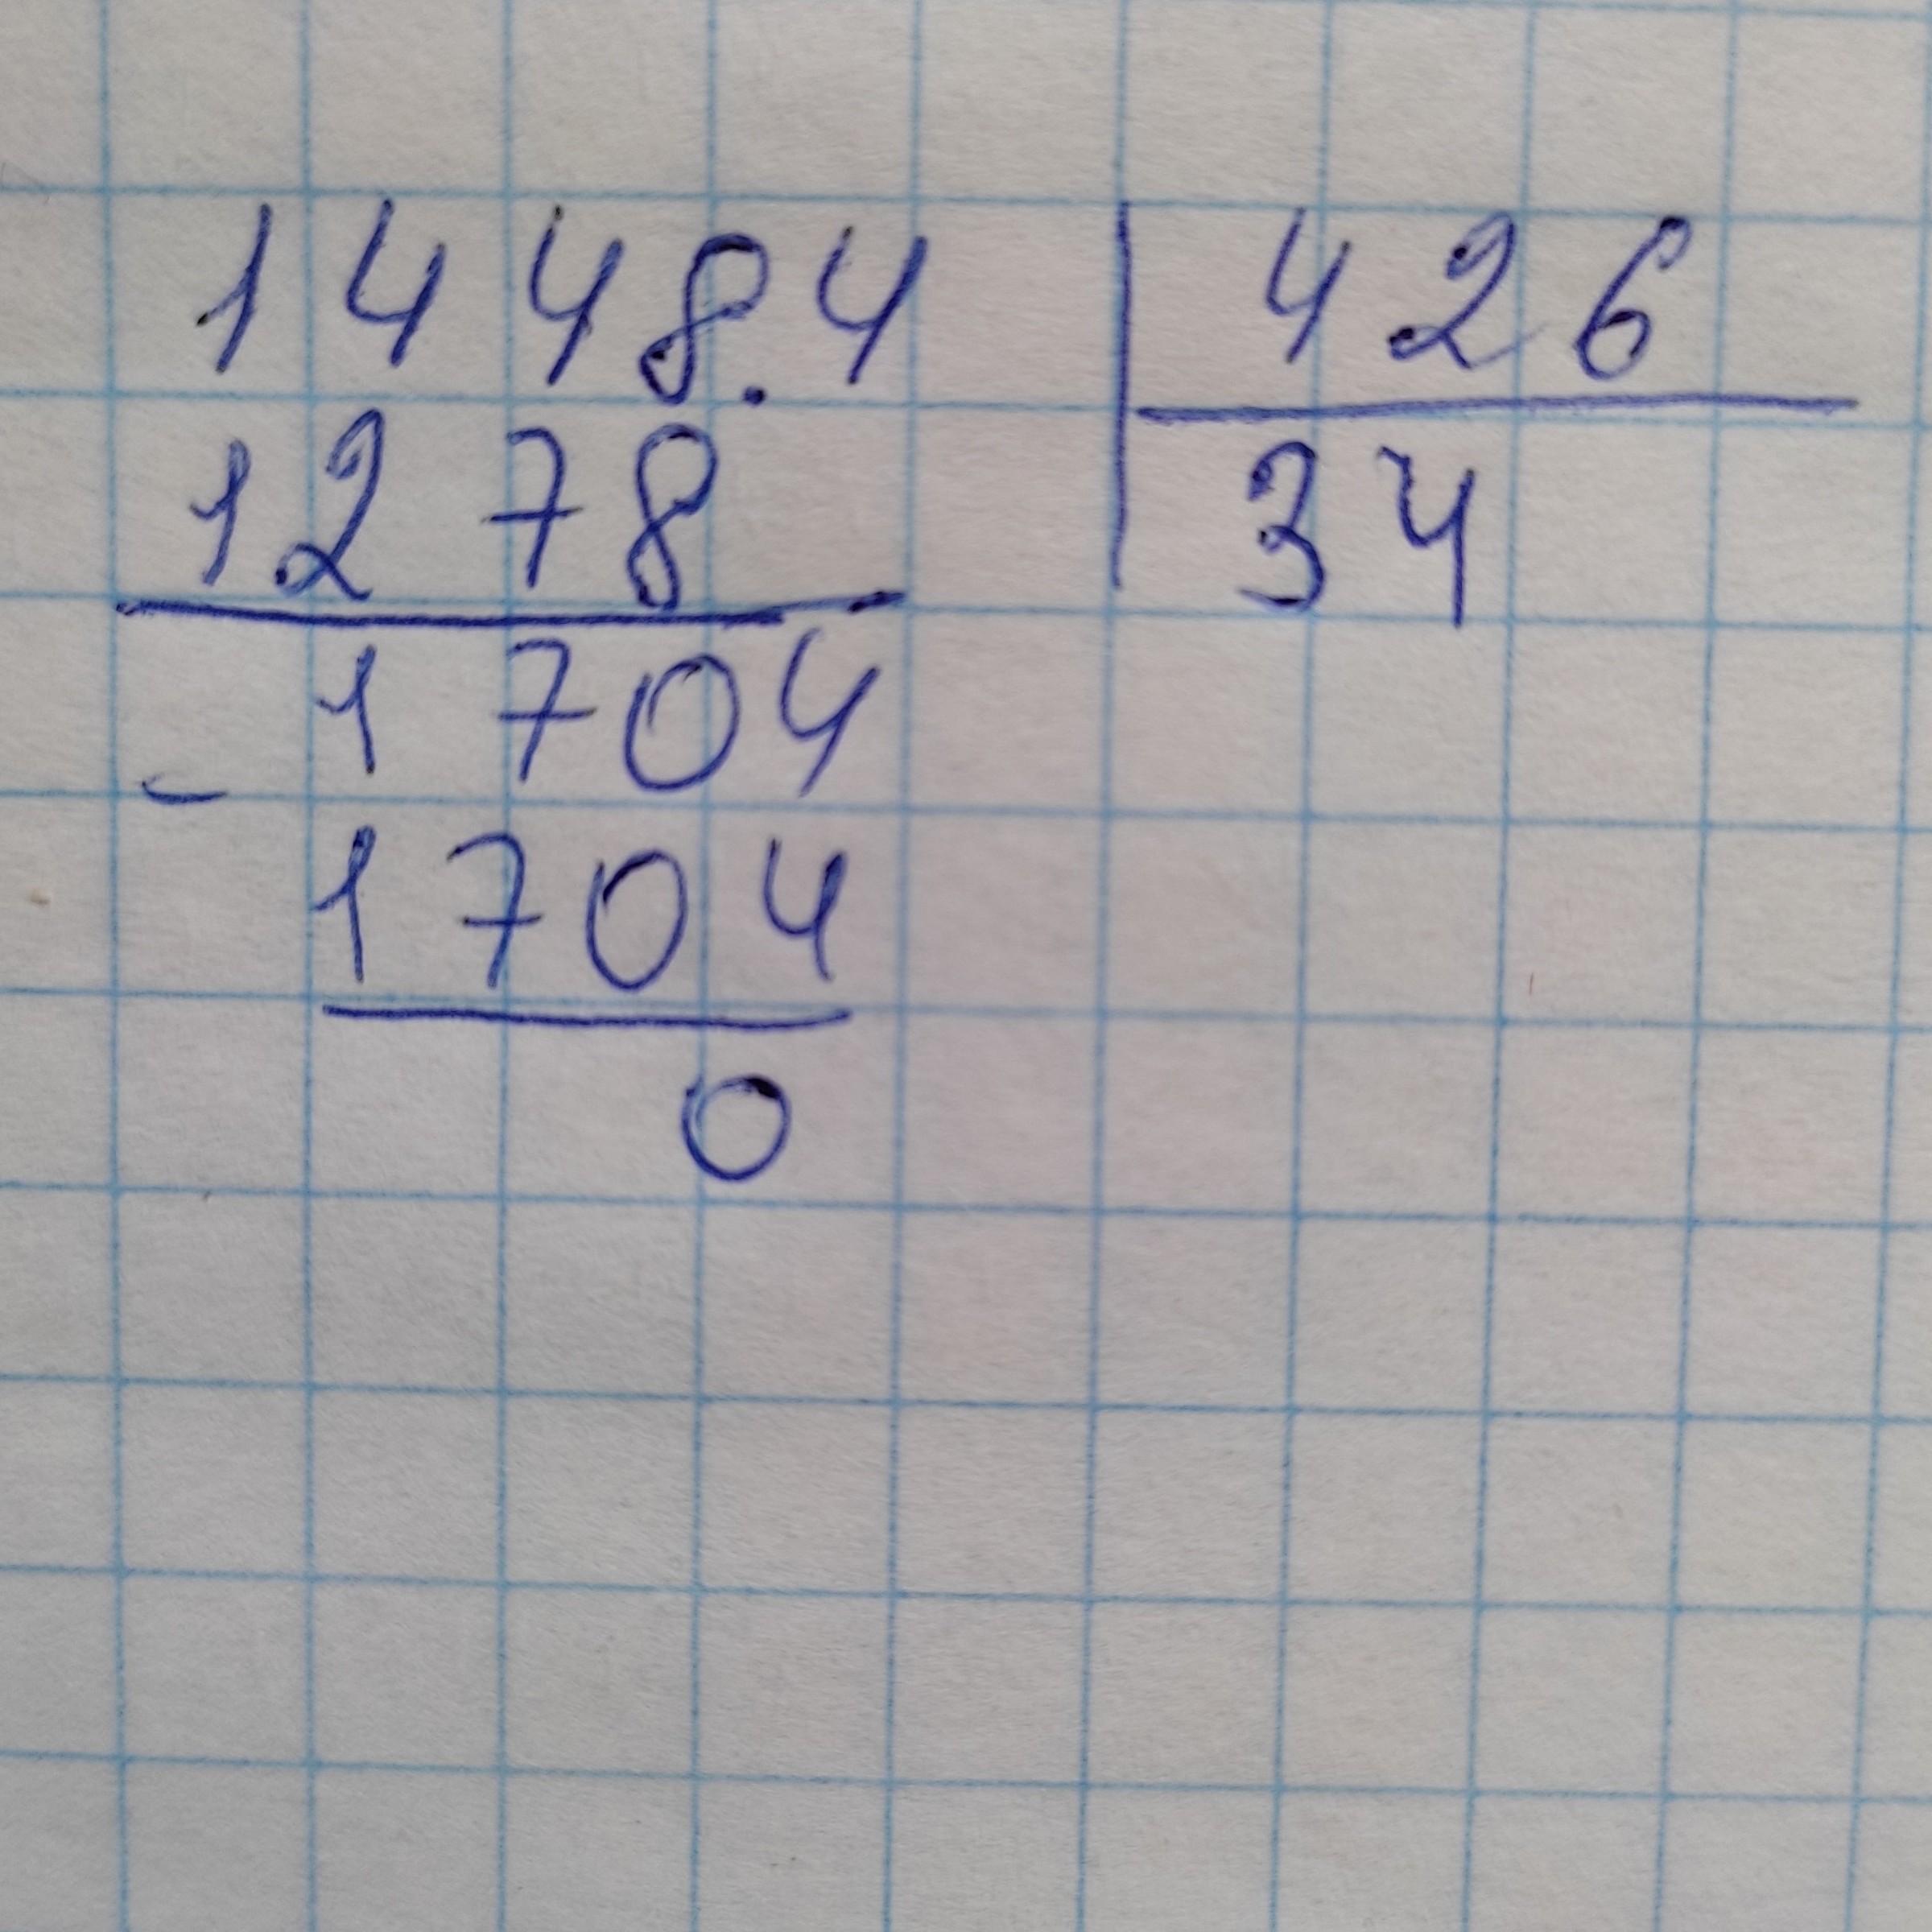 14484 | 426
1278 | 34
1704
-
1704
0